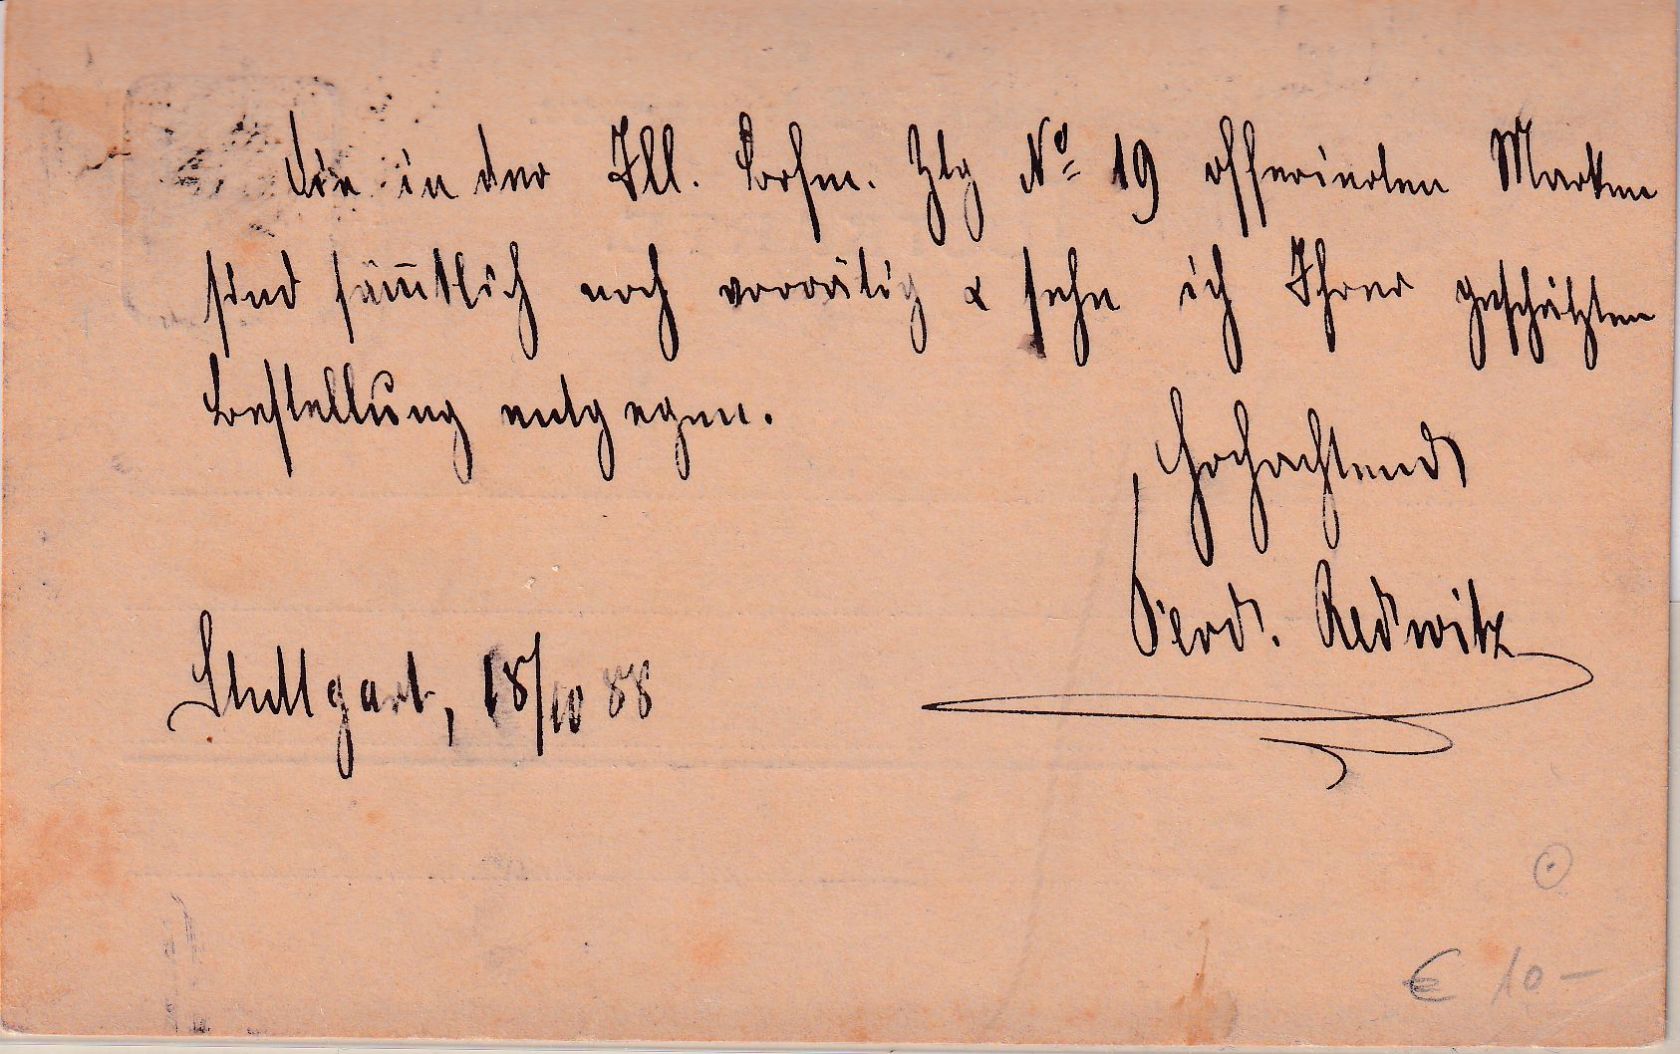 Die in der Ill. Brfm. Ztg No 19 offerierten Marken
sind säm̅tlich noch vorrätig & sehe ich Ihrer geschätzten
Bestellung entgegen.
Hochachtend
Ferd. Redwitz
Stuttgart, 18/10 88
€ 10 –